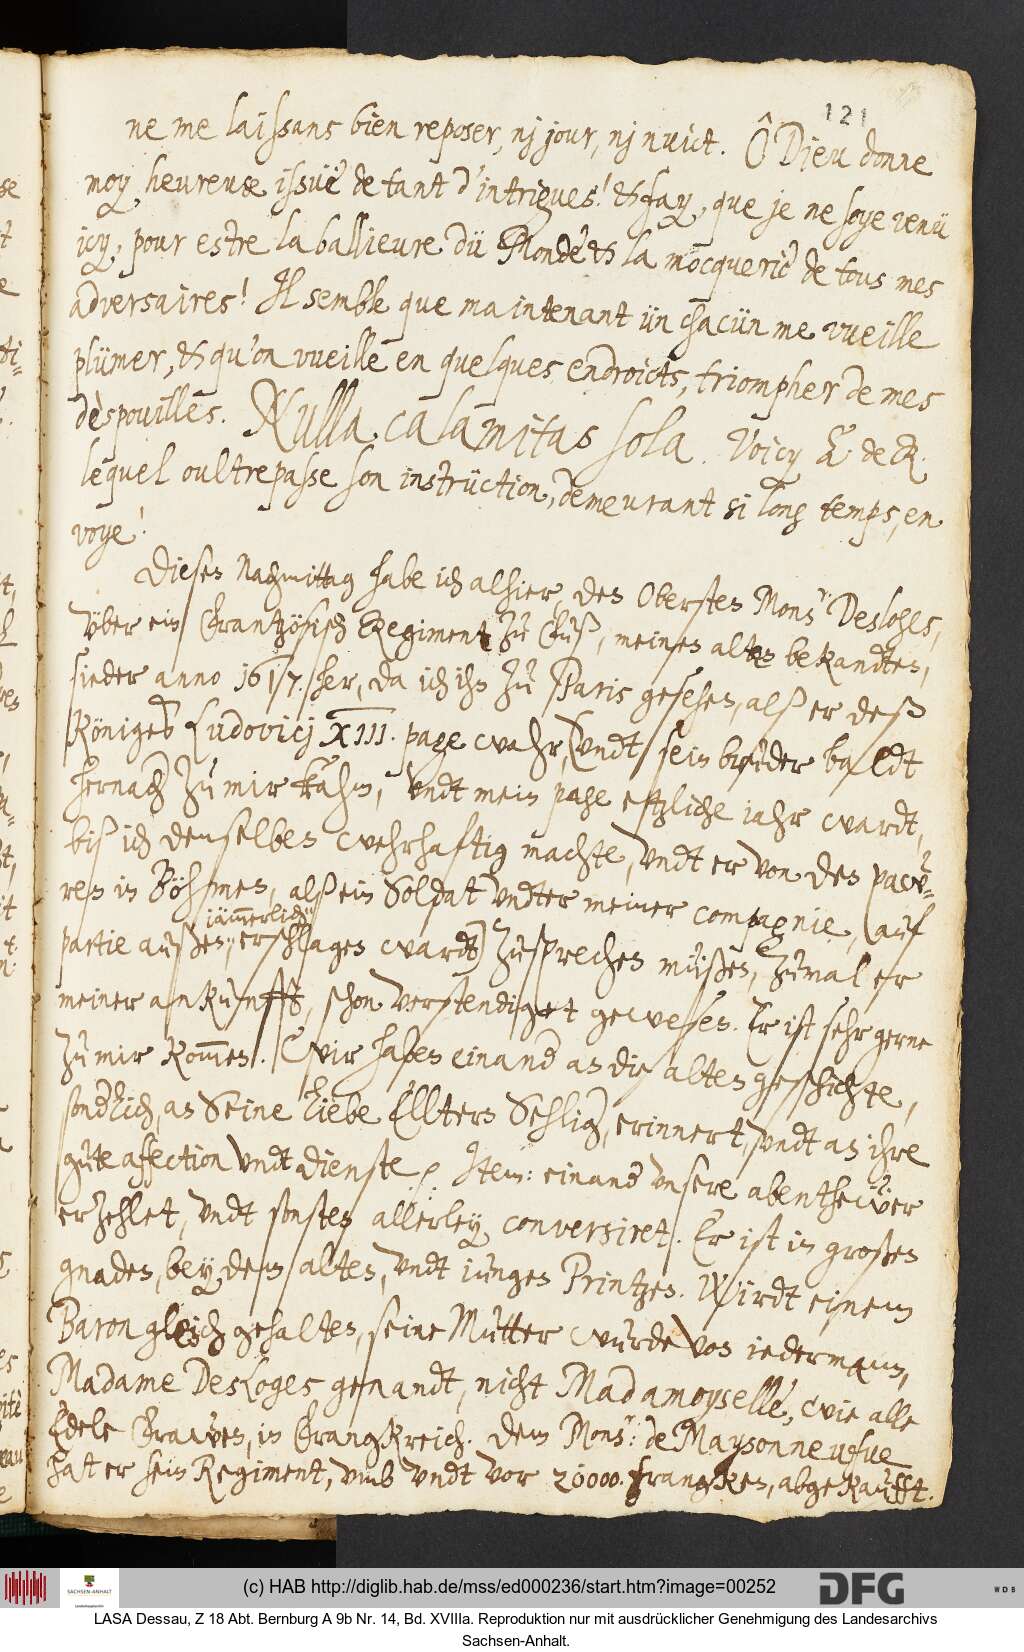 121
ne me laissans bien reposer, nj jour, nj nuict. Ô Dieu donne
moy, heureuse issuë de tant d'intrigues! & fay, que je ne soye venü
icy, pour estre la ballieure dü Monde & la mocquerie de tous mes
adversaires! Il semble que maintenant ün chacün me vueille
plümer, & qu'on vueille en quelques endroicts, triompher de mes
despouilles. Nulla calamitas sola. Voicy de R.
lequel oultrepasse son instrüction, demeurant si long temps, en
voye!
Diesen Nachmittag habe ich alhier, den Obersten Mons.r Desloges,
vber ein Frantzösisch Regiment zu Fuß, meinen alten bekandten,
sieder anno 1617. her, da ich ihn zu Paris gesehen, alß er deß
Königes Ludovicj XIII. page wahr, (vndt sein bruder baldt
hernach zu mir kahm, vndt mein page etzliche iahr wardt,
biß ich denselben wehrhaftig machte, vndt er von den paw-
ren in Böhmen, alß ein Soldat vndter meiner compagnie, (auf
iämmerlich
partie außen, erschlagen wardt) zusprechen müßen, zumal er
meiner ankunfft, schon verstendiget gewesen. Er ist sehr gerne
zu mir kommen. Wir haben einand an die alten geschichte,
sondlich, an Seine liebe Elltern Sehlig, erinnert, vndt an ihre
gute affection vndt dienste. Item: einand vnsere abenthewer
erzehlet, vndt sonsten allerley conversiret. Er ist in großen
gnaden, bey dem alten, vndt iungen Printzen. Wirdt einem
Baron gleich gehalten, seine Mutter wurde von iedermann,
Madame Desloges genandt, nicht Madamoyselle, wie alle
Edele Frawen, in Frangkreich. Dem Mons.r: de Maysonneufue
hat er sein Regiment, vmb vndt vor 20000. frangken, abgekaufft.
(c) HAB http://diglib.hab.de/mss/ed000236/start.htm?image=00252
SACHSEN-ANHALT
DFG
WDB
LASA Dessau, Z 18 Abt. Bernburg A 9b Nr. 14, Bd. XVIIIa. Reproduktion nur mit ausdrücklicher Genehmigung des Landesarchivs
Sachsen-Anhalt.